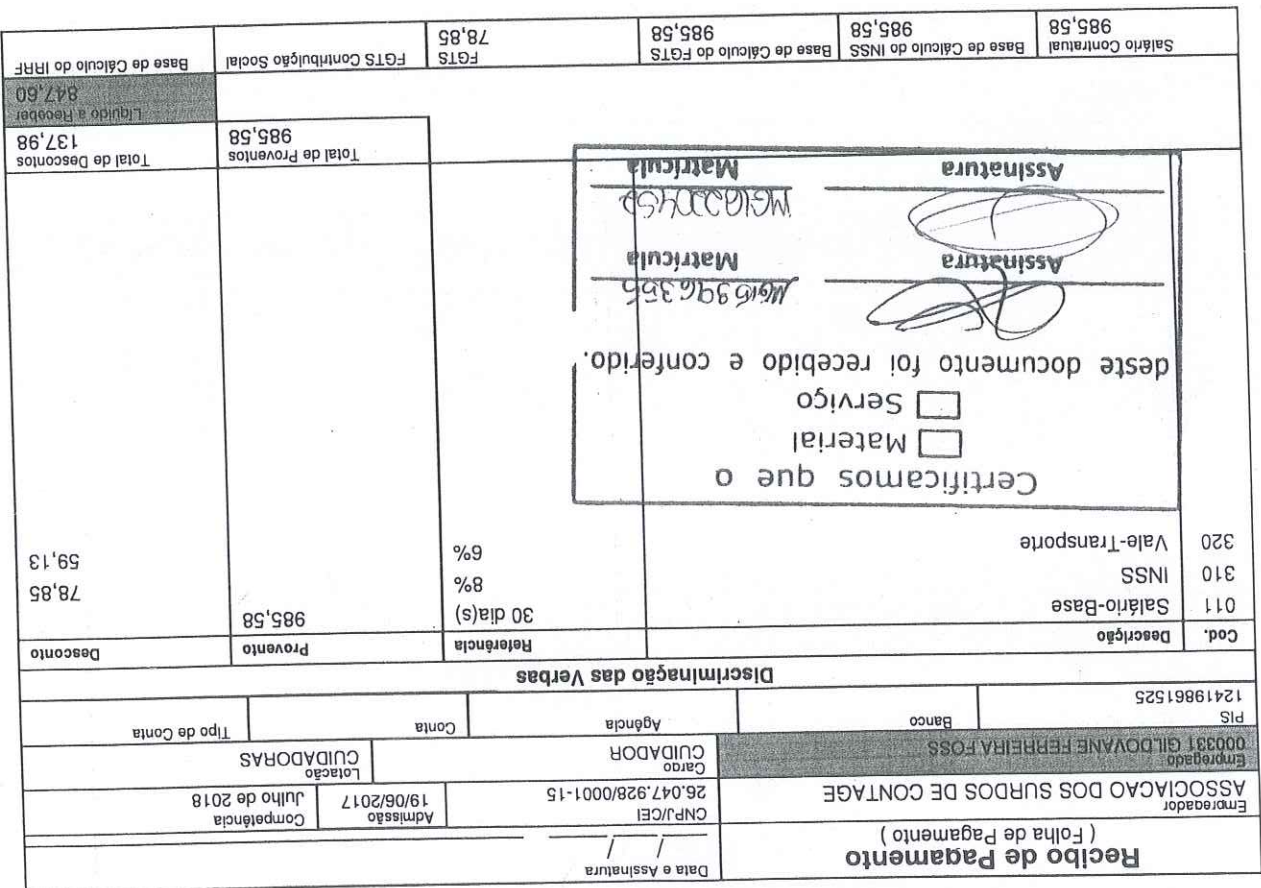 Recibo de Pagamento
( Folha de Pagamento )
Data e Assinatura
Empregador
ASSOCIACAO DOS SURDOS DE CONTAGE
CNPJ/CEI
26.047.928/0001-15
Admissão
19/06/2017
Competência
Julho de 2018
Empregado
000331 GILDOVANE FERREIRA FOSS
Cargo
CUIDADOR
Lotação
CUIDADORAS
PIS
12419861525
Banco
Agência
Conta
Tipo de Conta
Discriminação das Verbas
Cod. Descrição Referência Provento Desconto
011 Salário-Base 30 dia(s) 985,58
310 INSS 8% 78,85
320 Vale-Transporte 6% 59,13
Certificamos que o
Material
Serviço
deste documento foi recebido e conferido.
MG15396355
Assinatura Matrícula
Assinatura Matrícula
Total de Proventos
985,58
Total de Descontos
137,98
Líquido a Receber
847,60
Salário Contratual
985,58
Base de Cálculo do INSS
985,58
Base de Cálculo do FGTS
985,58
FGTS
78,85
FGTS Contribuição Social
Base de Cálculo do IRRF